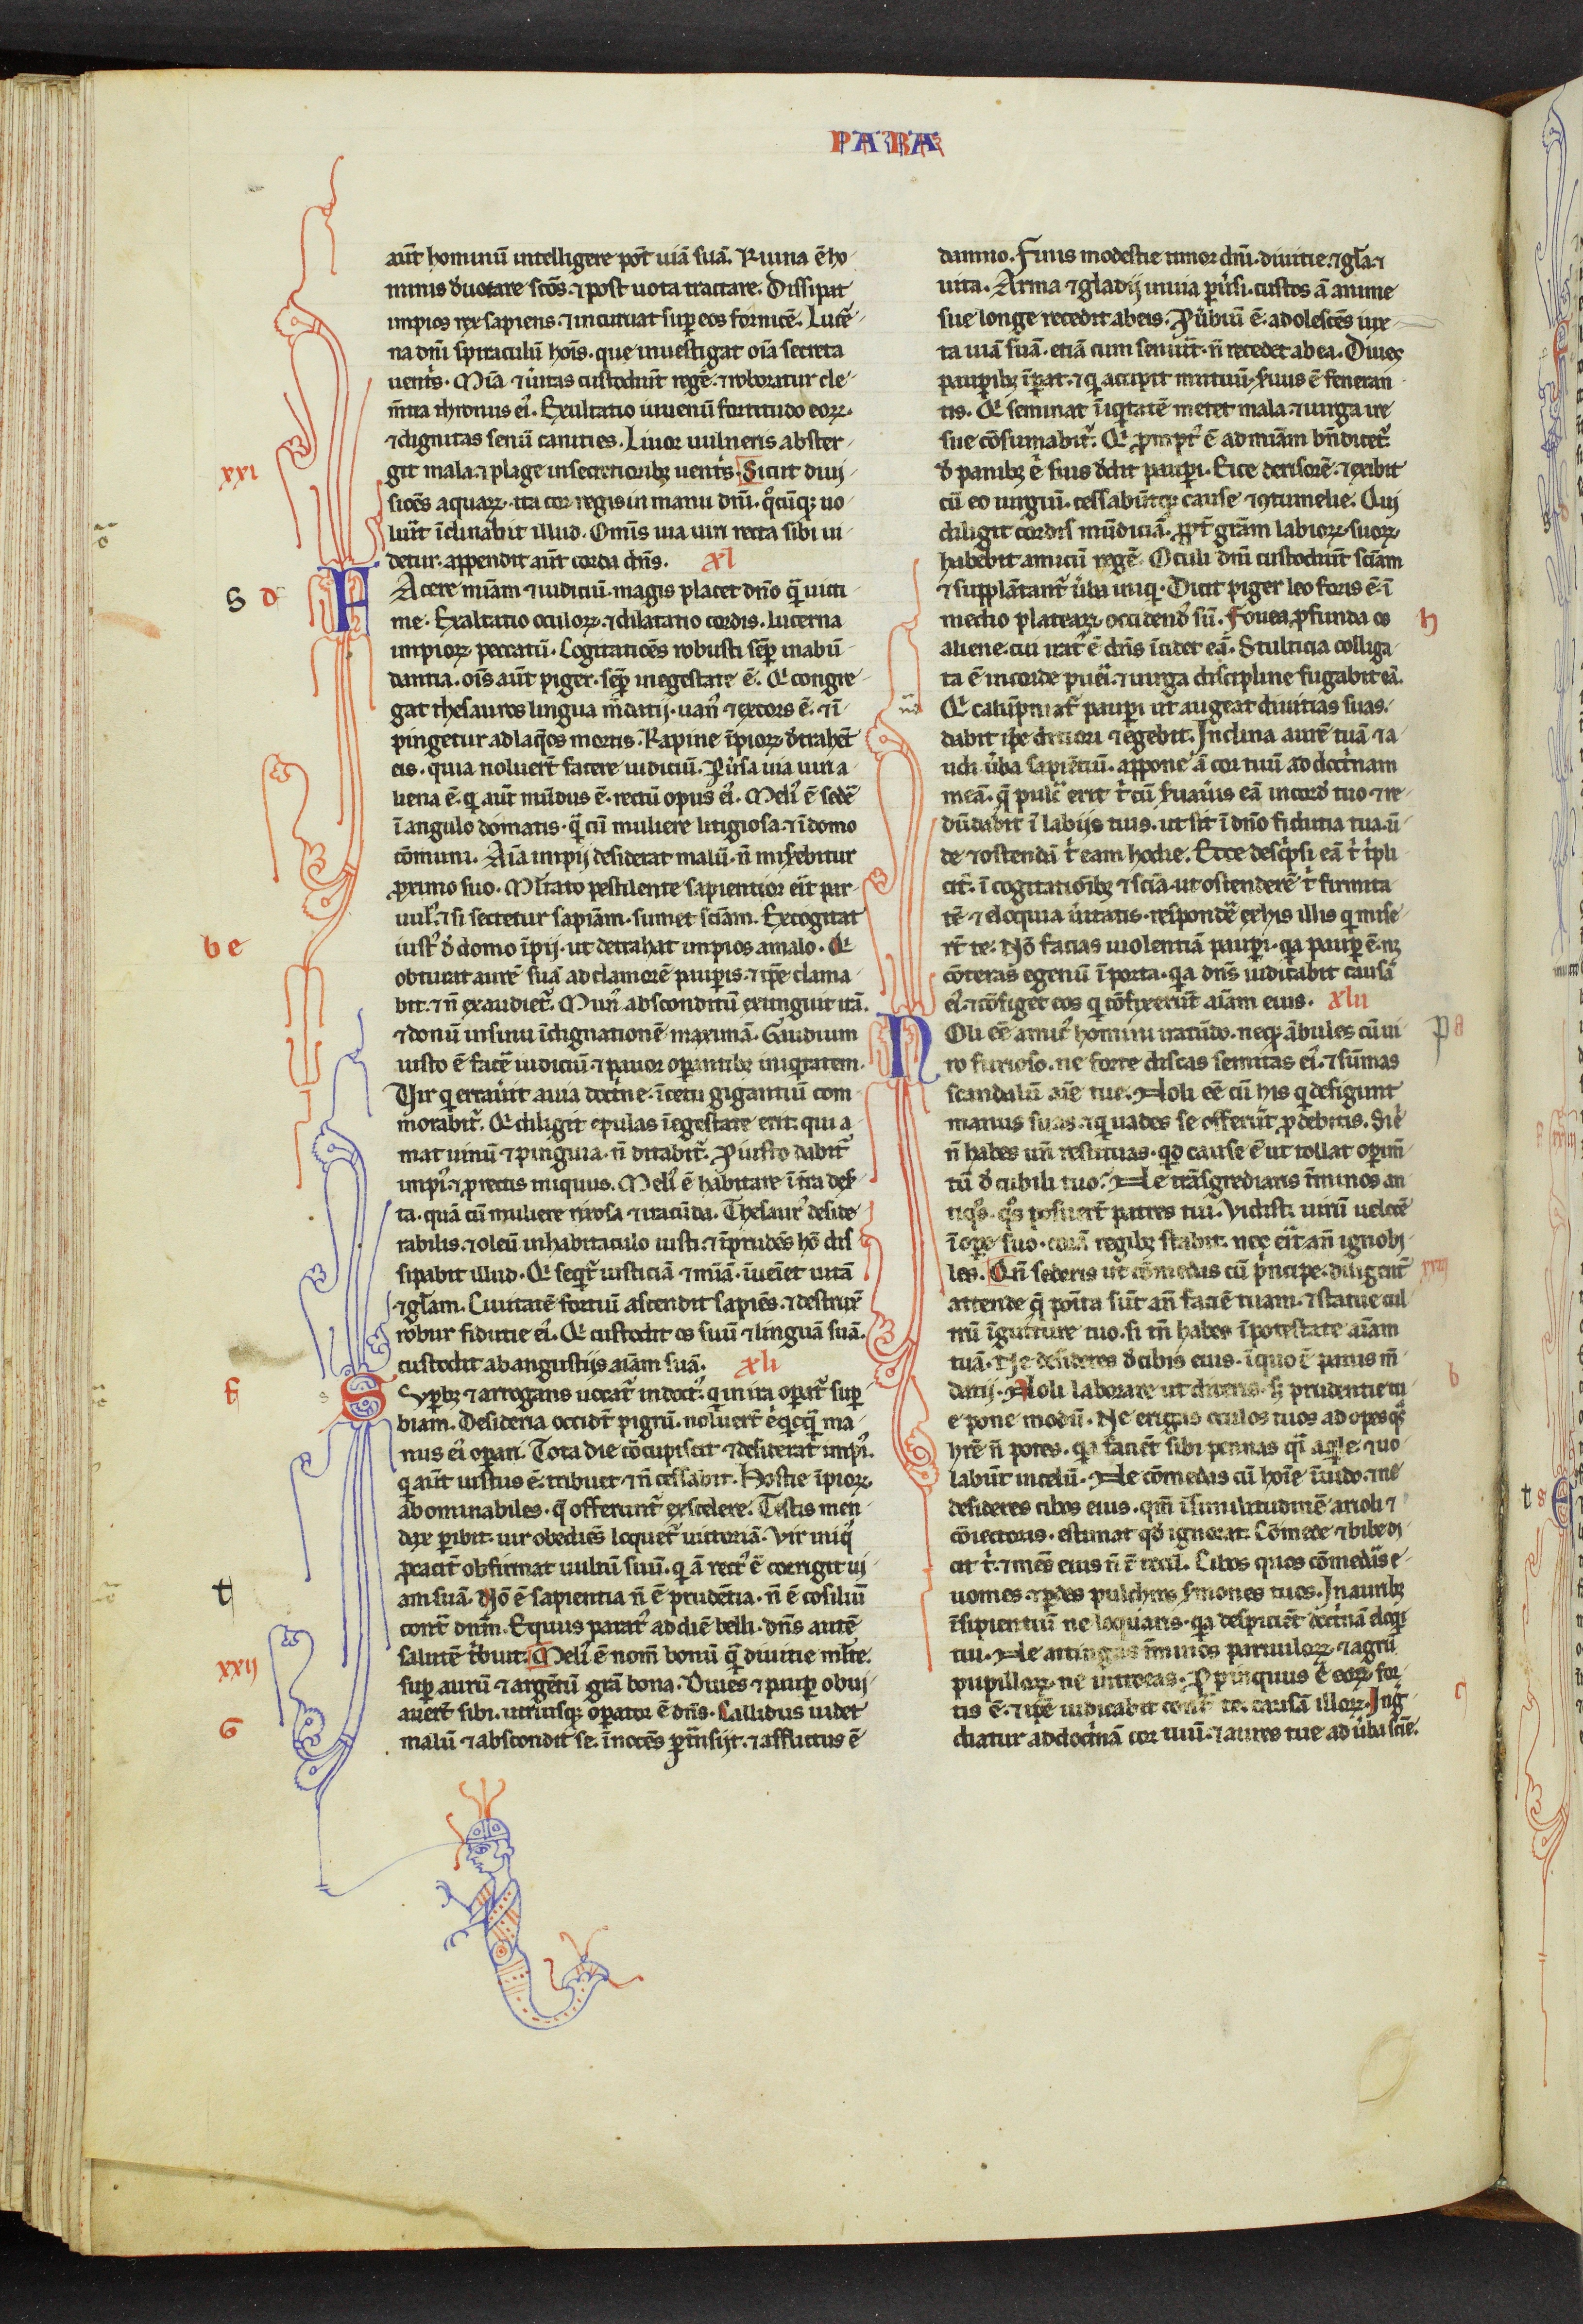 PARA
aut̄ hominū intelligere pōt uiā suā. Ruina ē ho
minis d̕uotare sc̄os. ⁊ post uota tractare. Dissipat
impios rex sapiens. ⁊ incuruat sup eos fornicē. Lucer
na dn̄i spiraculū hoīs. que inuestigat oīa secreta
uent̕s. Mīa ⁊ u̕itas custodiūt regē. ⁊ roboratur cle
m̄tia thronus ei᾽. Exultatio iuuenū fortitudo eoꝝ.
⁊ dignitas senū canities. Liuor uulneris abster
git mala. ⁊ plage insecretioribꝫ uent̕s. Sicut diui
xxi
siōes aquaꝝ. ita cor regis in manu dn̄i. q̊cūqꝫ uo
lūit īclinabit illud. Omīs uia uiri recta sibi ui
detur. appendit aūt corda dn̄s. xl
Acere miām ⁊ iudiciū. magis placet dn̄o q̄ uicti
S d
me. Exaltatio oculoꝝ. ⁊ dilatatio cordis. lucerna
impioꝝ peccatū. Cogitatiōes robusti sēp inabū
dantia. oīs aūt piger. sēp inegestate ē. Q͛ congre
gat thesauros lingua m̄datij. uan᾽ ⁊ excors ē. ⁊ ī
pingetur ad laq̄os mortis. Rapine īpioꝝ d̕trahēt
eis. quia noluer̄t facere iudiciū. P̕uersa uia uiri a
liena ē. q̇ aūt mūdus ē. rectū opus ei᾽. Meli᾽ ē sedē
ī angulo domatis. q̄ cū muliere litigiosa. ⁊ ī domo
cōmuni. Aīa impij desiderat malū. n̄ miserebitur
ꝓximo suo. Mltato pestilente sapientior eīt par
uul᾽. ⁊ si sectetur sapiām. sumet sciām. Excogitat
iust᾽ d̕ domo īpij. ut detrahat impios amalo. Q͛
b e
obturat aurē suā ad clamorē paupis. ⁊ ip̄e clama
bit. ⁊ n̄ exaudiet᾽. Mun᾽ absconditū extinguit irā.
⁊ donū insinu īdignationē maximā. Gaudium
iusto ē facē iudiciū ⁊ pauor opantibꝫ iniq̇tatem.
Vir q̇ errauīt auia doct̕ne. īcetu gigantiū com
morabit᾽. Q͛ diligit epulas īegestate erit. qui a
mat uinū ⁊ pinguia. n̄ ditabit᾽. P iusto dabit᾽
impi᾽. ⁊ ꝓ rectis iniquus. Meli᾽ ē habitare ī t̄ra deser
ta. quā cū muliere rixosa ⁊ iracūda. Thesaur᾽ deside
rabilis. ⁊ oleū inhabitaculo iusti. ⁊ īprudēs hō dis
sipabit illud. Q͛ seqt᾽ iusticiā ⁊ mīā. īueniet uitā
⁊ gl̄am. Ciuitatē fortiū ascendit sapiēs. ⁊ destruxit
robur fiducie ei᾽. Q͛ custodit os suū ⁊ linguā suā.
custodit abangustijs aīam suā. xli
Suꝑbꝫ ⁊ arrogans uocat᾽ indoct᾽. q̇ in ira opat᾽ sup
f
biam. Desideria occidt̄ pigrū. noluer̄t eq̇cq̄ ma
nus ei᾽ opari. Tota die cōcupiscit ⁊ desiderat impi᾽.
q̇ aūt iustus ē. tribuet ⁊ n̄ cessabit. Hostie īpioꝝ
abominabiles. q̄ offerunt᾽ ex scelere. Testis men
dax pibit. uir obediēs loquet᾽ uictoriā. Vir impi᾽
ꝓcacit᾽ obfirmat uultū suū. q̇ ā rect᾽ ē corrigit ui
t
am suā. Nō ē sapientia n̄ ē prudētia. n̄ ē cōsiliū
cont̕ dnm̄. Equus parat᾽ ad diē belli. dn̄s autē
salutē t̕buit. Meli᾽ ē nom̄ bonū q̄ diuitie ml̄te.
xxij
sup aurū ⁊ argētū grā bona. Diues ⁊ paup obui
auer̄t sibi. utriusqꝫ opator ē dn̄s. Callidus uidet
G
malū ⁊ abscondit se. īnocēs ptn̄sijt. ⁊ afflictus ē
damno. Finis modestie timor dn̄i. diuitie. ⁊ gl̄a. ⁊
uita. Arma ⁊ gladij inuia puersi. custos ā anime
sue longe recedit abeis. Puerbiū ē. adolescēs iux
ta uiā suā. etiā cum senuīt. n̄ recedet ab ea. Diues
paupibꝫ īpat. ⁊ q̇ accipit mutuū seruus ē feneran
tis. Q͛ seminat īiq̇tatē metet mala. ⁊ uirga ire
sue cōsumabit᾽. Q͛ prompt᾽ ē ad miām bn̄dicet᾽
d̕ panibꝫ ē suis d̕dit paupi. Eice derisorē. ⁊ exibit
cū eo iurgiū. cessabūtqꝫ cause ⁊ ꝯtumelie. Qui
diligit cordis mūdiciā. ꝓpt̕ grām labioꝝ suoꝝ
habebit amicū regē. Oculi dn̄i custodiūt sciām
⁊ supplātant᾽ u̕ba iniq̇. Dicit piger leo foris ē. ī
medio plateaꝝ occidend᾽ sū. Fouea ꝓfunda os
h
aliene. cui irat᾽ ē dn̄s īcidet eā. Stulticia colliga
ta ē incorde puei. ⁊ uirga discipline fugabit eā.
Q͛ calūpniat᾽ paupi ut augeat diuitias suas.
dabit ip̄e ditiori ⁊ egebit. Inclina aurē tuā ⁊ a
udi u̕ba sapiētiū. appone ā cor tuū ad doct̕nam
meā. q̄ pulc̄ erit t̕ cū suaīs eā incord̕ tuo ⁊ re
dūdabit ī labijs tuis. ut sit ī dn̄o fiducia tua. ū
de ⁊ ostendā t̕ eam hodie. Ecce desc̕psi eā t̕ t̕pli
cit᾽. ī cogitatiōibꝫ ⁊ sciā. ut ostenderē t̕ firmita
tē ⁊ eloquia u̕itatis. respondē exhis illis q̇ mise
rt̄ te. Nō facias uiolentiā paupi. q̇a paup ē. nꝫ
cōteras egenū ī porta. q̇a dn̄s iudicabit causā
ei᾽. ⁊ cōfiget eos q̇ cōfixerūt aīam eius. xlii
Noli eē amic᾽ homini iracūdo. neqꝫ ābules cū ui
pa
ro furioso. ne forte discas semitas ei᾽. ⁊ sūmas
scandalū aīe tue. Noli eē cū his q̇ defigunt
manus suas. ⁊ q̇ uades se offerūt ꝓ debitis. Si ē
n̄ habes un̄ restituas. qd̕ cause ē ut tollat opim̄
tū d̕ cubili tuo. Ne trāsgrediaris t̄minos an
tiq̊s. q̊s posuer̄t patres tui. Vidisti uirū uelocē
ī ope suo. corā regibꝫ stabit. nec eīt an̄ ignobi
les. Qn̄ sederis ut cōmedas cū pncipe. diligent᾽
xxiij
attende q̄ poīta sūt an̄ faciē tuam. ⁊ statue cul
trū īgutture tuo. si tn̄ habes īpotestate aīam
tuā. Ne desideres d̕ cibis eius. ī quo ē panis m̄
dacij. Noli laborare ut diteris. sꝫ prudentie tu
b
e pone modū. Ne erigas oculos tuos ad opes q̊s
hr̄e n̄ potes. q̇a faciēt sibi pennas q̄i aq̇le. ⁊ uo
labūt incelū. Ne cōmedas cū hoīe īuido. ⁊ ne
desideres cibos eius. qm̄ īsimilitudinē arioli ⁊
cōiectoris. estimat qd̕ ignorat. Cōmede ⁊ bibe di
cit t̕. ⁊ mēs eius n̄ ē tecū. Cibos quos cōmedis e
uomes. ⁊ pdes pulchros s̕mones tuos. In auribꝫ
īsipientiū ne loquaris. q̇a despiciēt doct̕nā eloq̇i
tui. Ne attingas t̄minos paruuloꝝ. ⁊ agrū
pupilloꝝ. ne introeas. Ppinquus ē eoꝝ for
tis ē. ⁊ ip̄e iudicabit cont̕ te. causā illoꝝ. Ingre
c
diatur ad doct̕nā cor tuū. ⁊ aures tue ad u̕ba sciē.